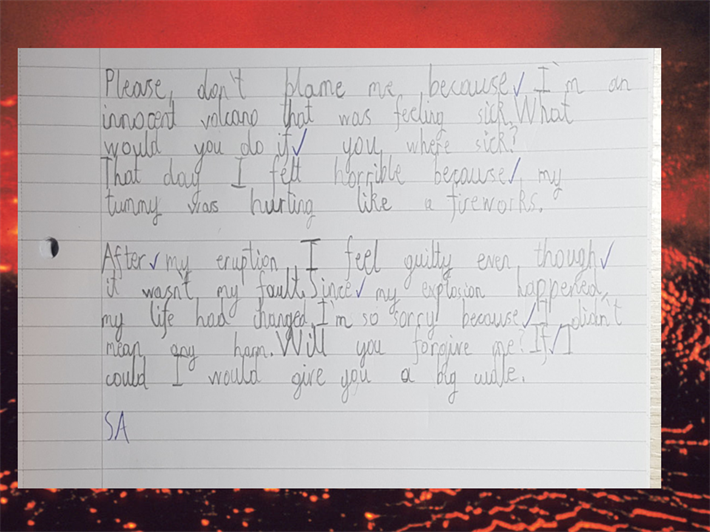 Please, don't blame me because I'm an
innocent volcano that was feeling sick. What
would you do if you where sick?
That day I felt horrible because my
tummy was hurting like a fireworks.
After my eruption I feel guilty even though
it wasn't my fault. Since my explosion happened,
my life had changed. I'm so sorry because I didn't
mean any harm. Will you forgive me? If I
could I would give you a big
SA